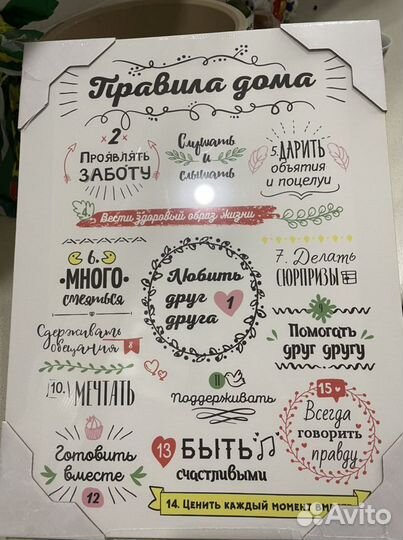 Правила дома
2.
Проявлять
заботу
Слушать
и
слышать
5. Дарить
объятия
и поцелуи
4. Вести здоровый образ жизни
6.
Много
смеяться
Любить
друг
друга
1
7. Делать
сюрпризы
Сдерживать
обещания 8
Помогать
друг другу
10. Мечтать
11
Поддерживать
15
Всегда
говорить
правду
Готовить
вместе
12
13 Быть
счастливыми
14. Ценить каждый момент
Avito